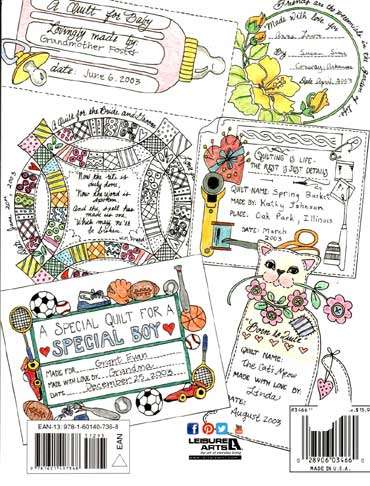 A Quilt for Baby
Lovingly made by:
Grandmother Foster
date: June 6, 2003
Friends are the perennials in the garden of life.
Made With love for
By Susan
Conway, Arkansas
Date April, 2003
A Quilt for the Bride and Groom
June 2003
Now the rite is
duly done,
Now the word is
spoken,
And the spell has
made us one,
Which may ne'er
be broken.
QUILTING IS LIFE -
THE REST IS JUST DETAILS
QUILT NAME: Spring Basket
MADE BY: Kathy Johnson
PLACE: Oak Park, Illinois
DATE: March
2003
A SPECIAL QUILT FOR A
SPECIAL BOY
MADE FOR: Grant Evan
MADE WITH LOVE BY: Grandma
DATE: December 25, 2003
Born to Quilt
QUILT NAME:
The Cat's Meow
MADE WITH LOVE BY:
Linda
DATE:
August 2003
EAN-13: 978-1-60140-736-8
EAN
LEISURE ARTS
the art of everyday living
#3466
$15.9
0 28906 03466 0
MADE IN U.S.A.